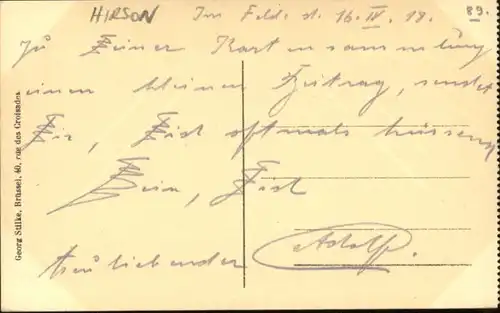 HIRSON Im Felde d. 16. IV. 19. 89.
Zu Deiner Kartensammlung
einen kleinen Beitrag, sendet
Dir, Dich oftmals küssend
Dein, Dich
treu liebender
Adolf.
Georg Stilke, Brüssel, 40, rue des Croisades